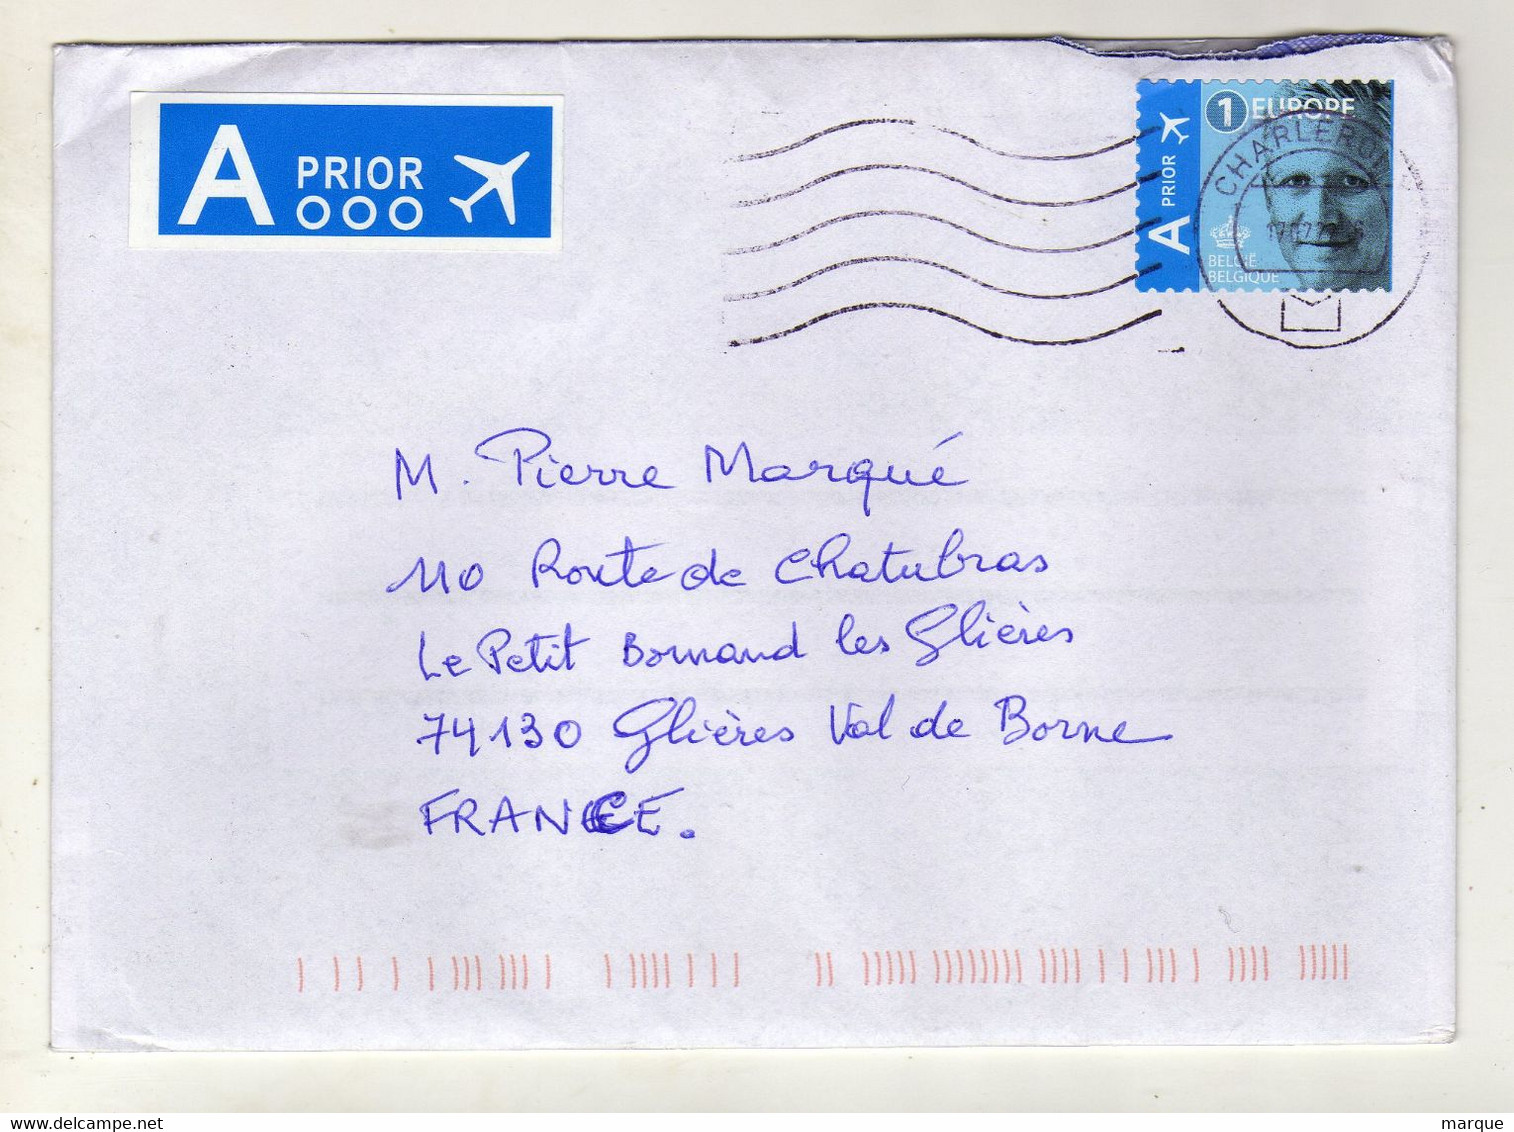 A PRIOR
1 EUROPE
A PRIOR
BELGIË
BELGIQUE
M. Pierre Marqué
110 Route de Chatubras
Le Petit Bornand les Glières
74130 Glières Val de Borne
FRANCE.
delcampe.net
marque